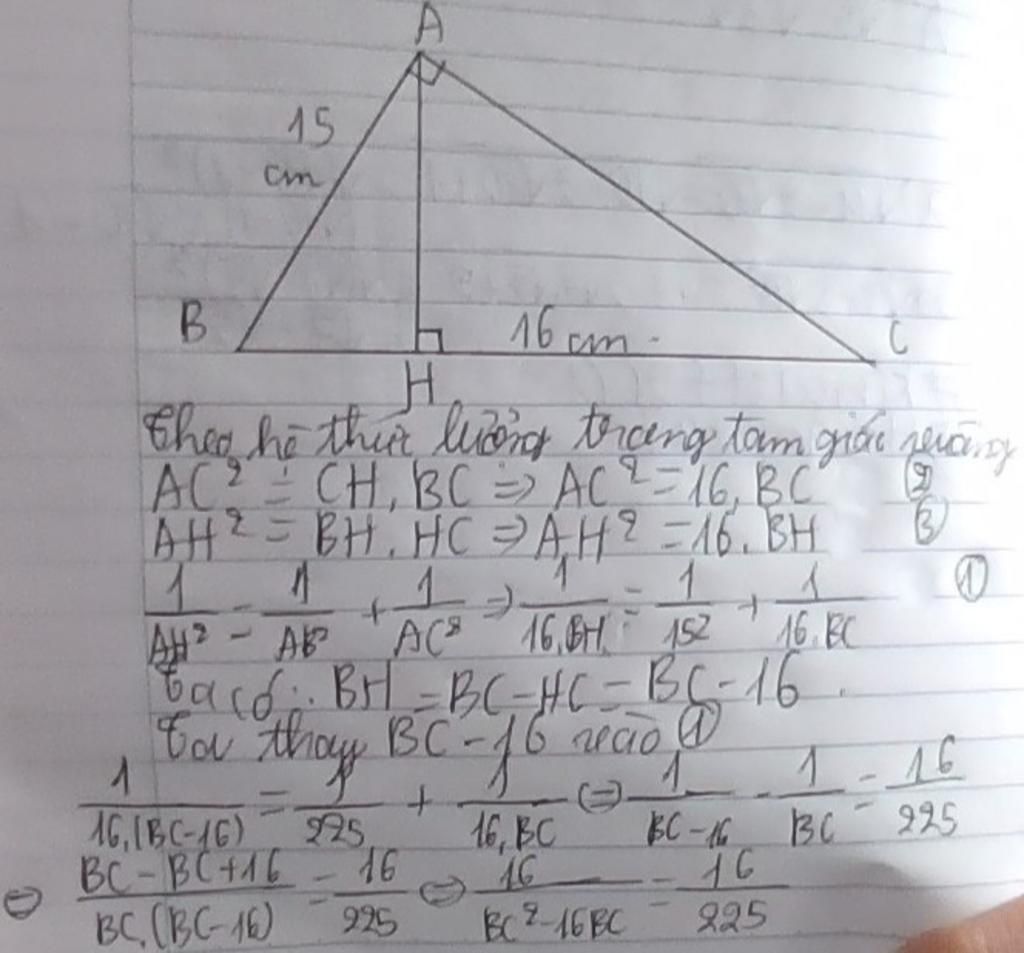 A
15
cm
B
16 cm
C
H
Theo hệ thức lượng trong tam giác vuông
AC² = CH. BC ⇒ AC² = 16. BC (2)
AH² = BH. HC ⇒ AH² = 16. BH (3)
1/AH² = 1/AB² + 1/AC² ⇒ 1/16.BH = 1/15² + 1/16.BC (1)
Ta có: BH = BC - HC = BC - 16.
Ta thay BC - 16 vào (1)
1/16.(BC-16) = 1/225 + 1/16.BC ⇔ 1/BC-16 - 1/BC = 16/225
⇔ BC - BC + 16/BC.(BC-16) = 16/225 ⇔ 16/BC²-16BC = 16/225